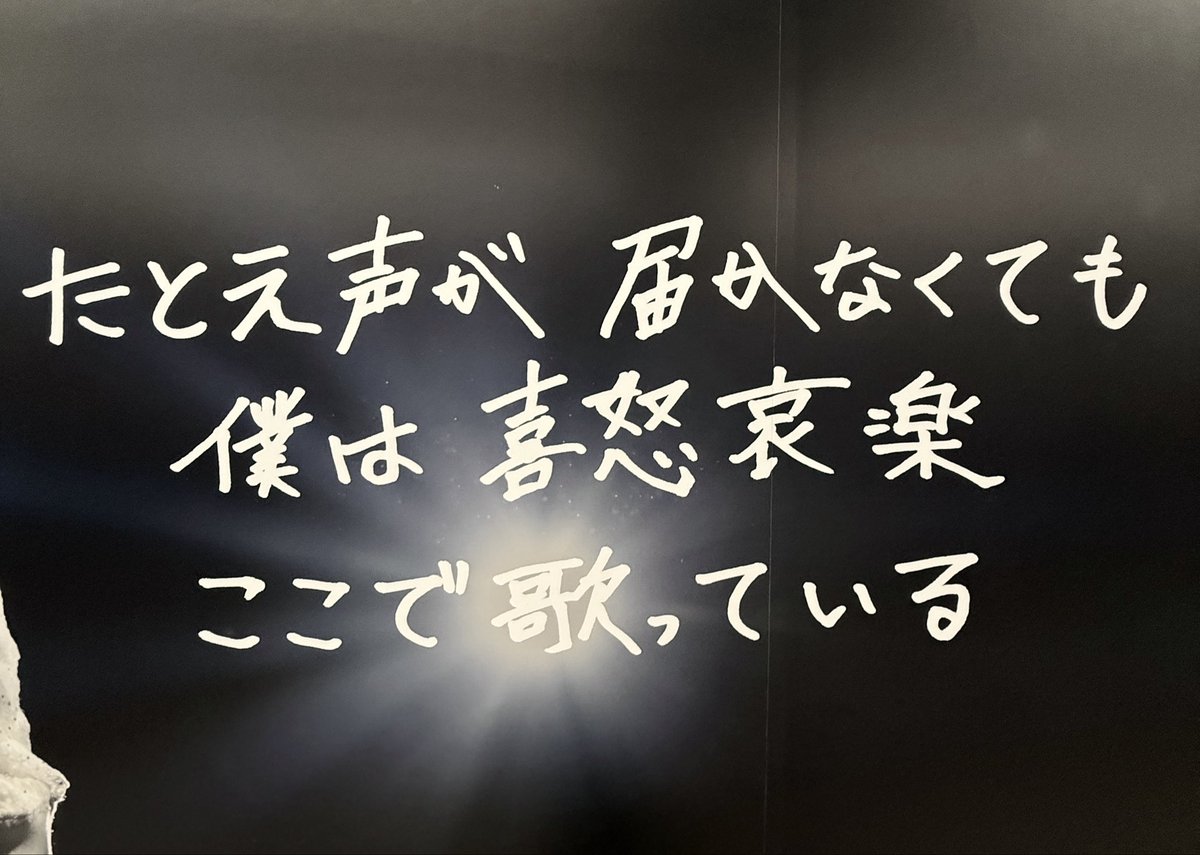 たとえ声が 届かなくても
僕は 喜怒哀楽
ここで歌っている